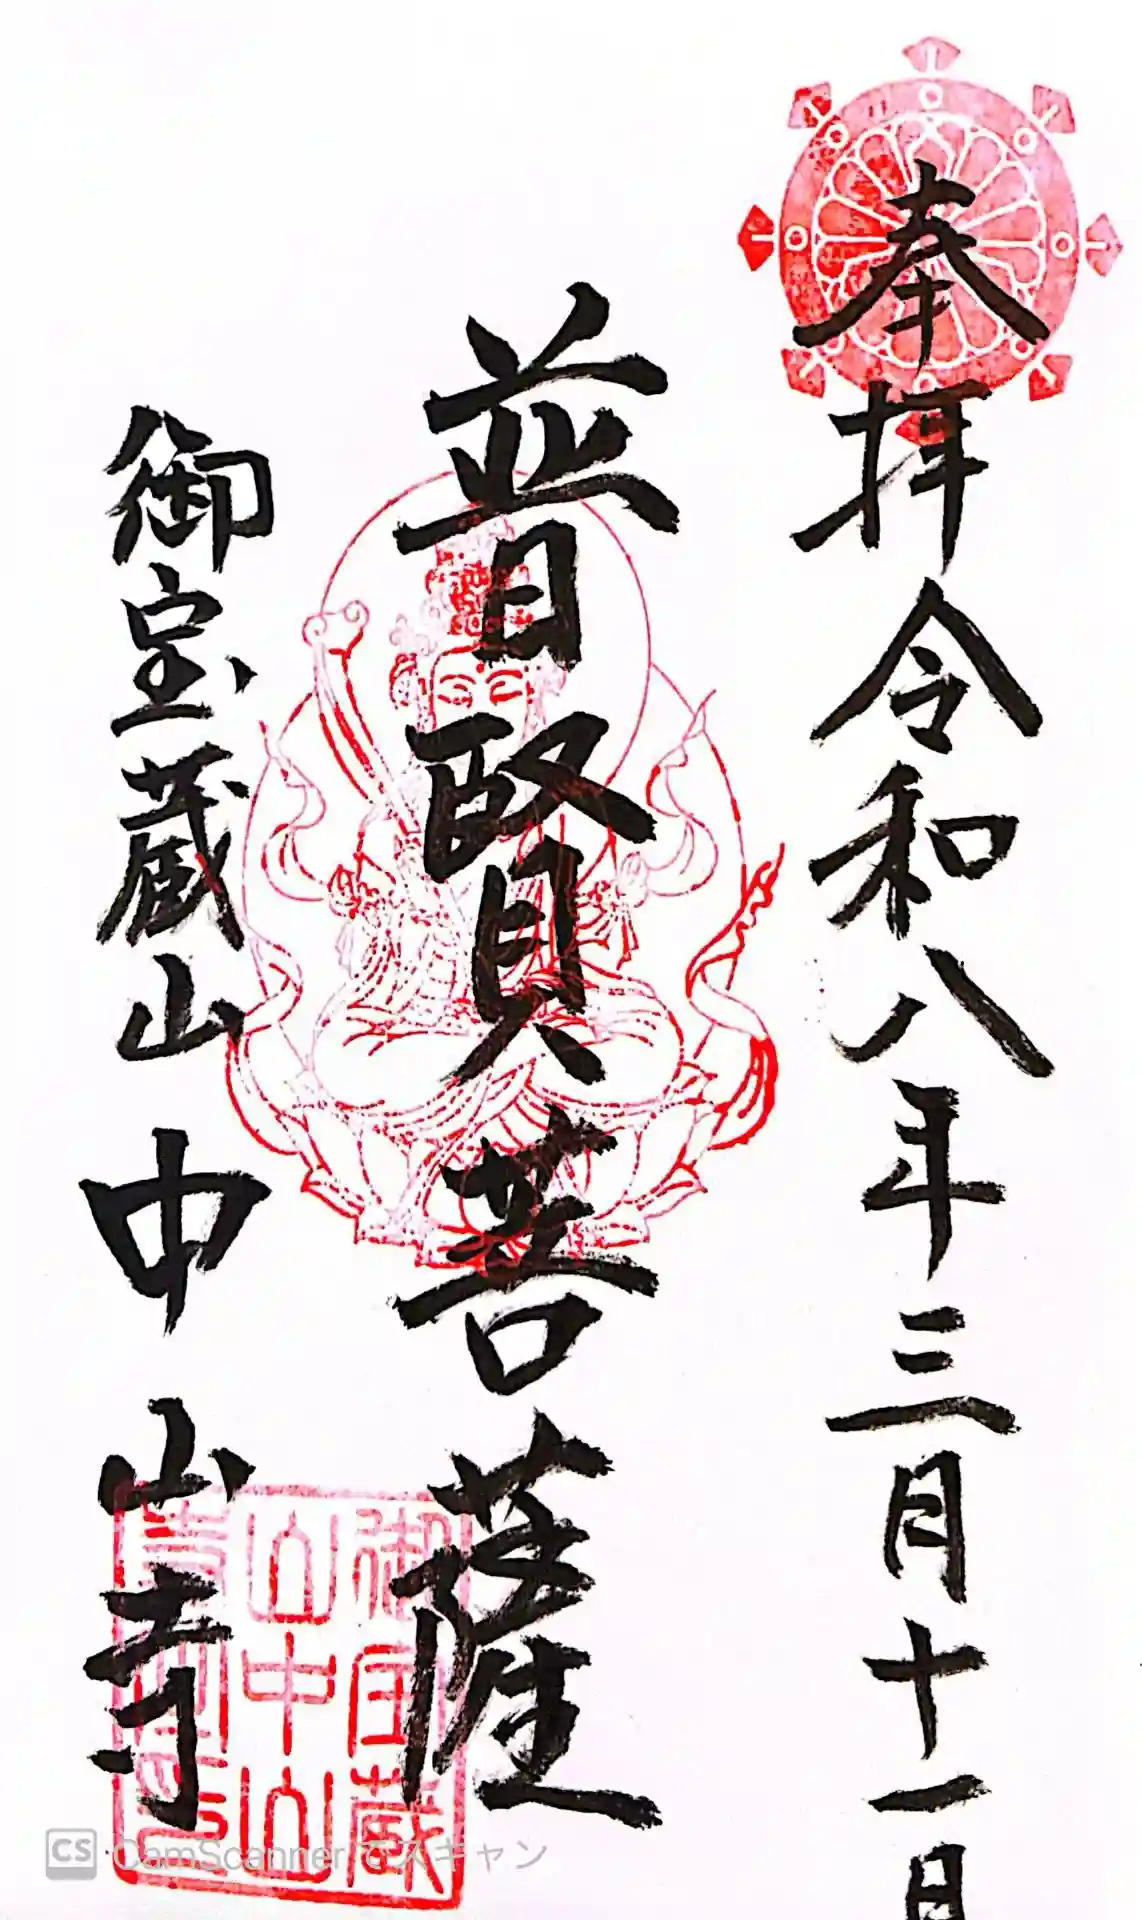 奉拝 令和八年三月十一日
普賢菩薩
御宝蔵山 中山寺
御宝蔵
山中山
CamScannerでスキャン